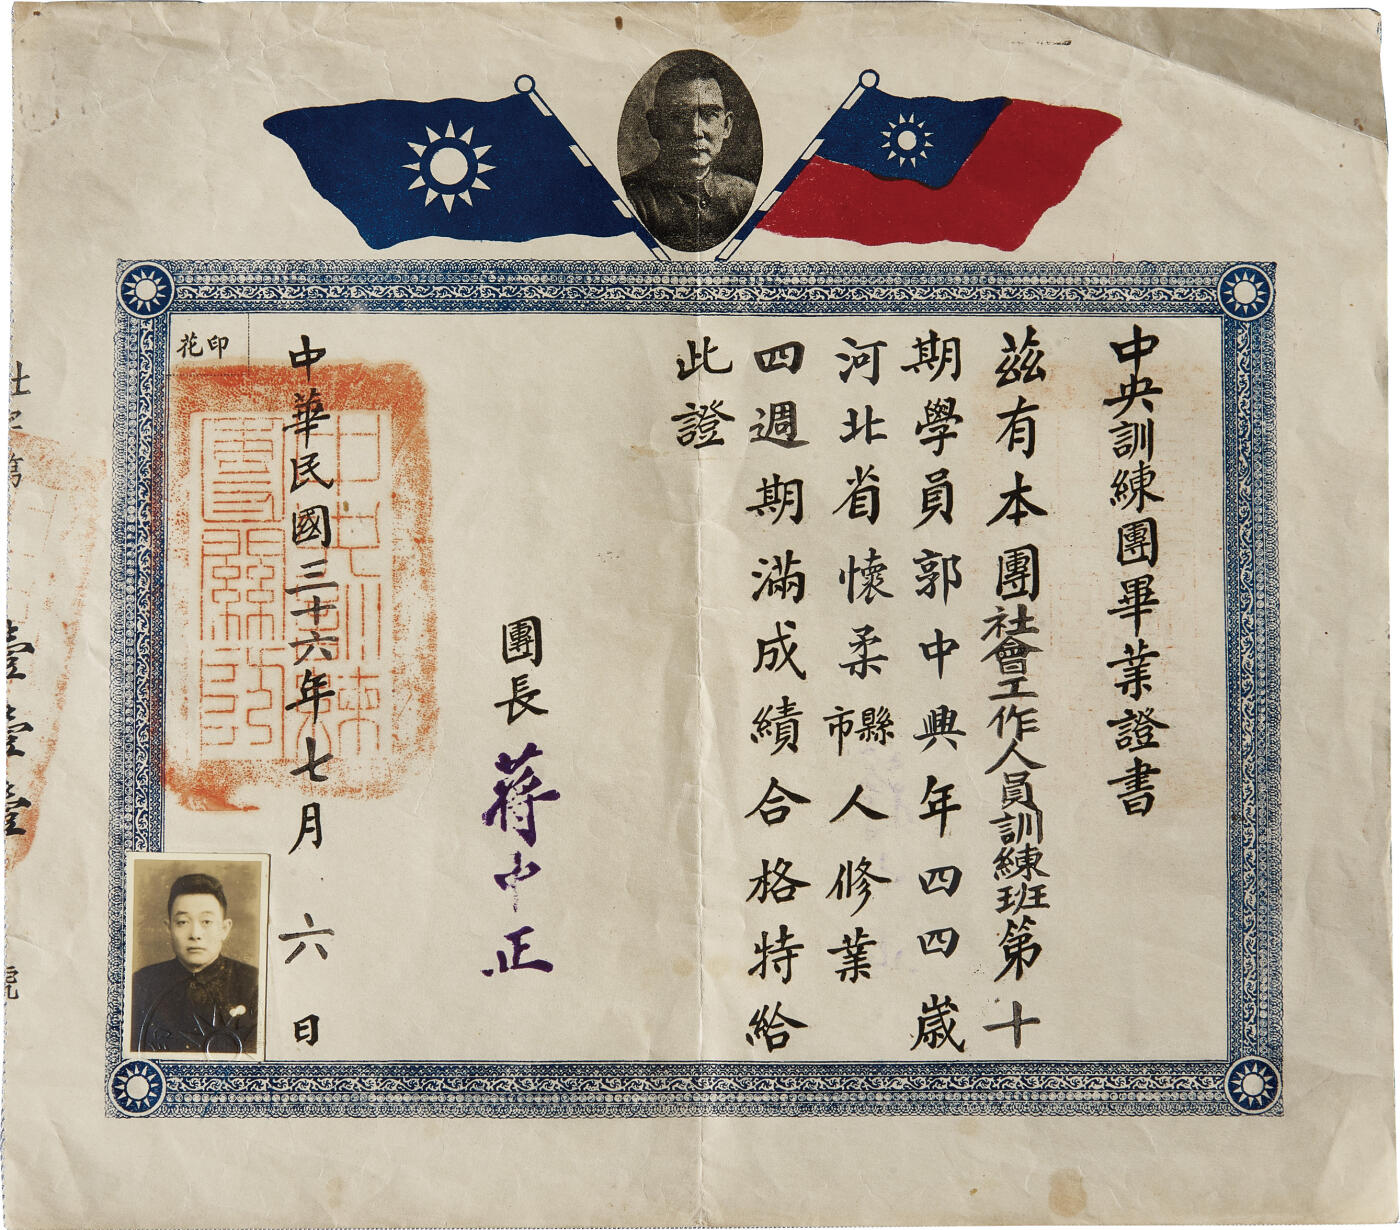 中央訓練團畢業證書
茲有本團社會工作人員訓練班第十
期學員郭中興年四四歲
河北省懷柔縣市人修業
四週期滿成績合格特給
此證
團長 蔣中正
中華民國三十六年七月六日
印花
中央訓練團關防
社字第壹壹壹號